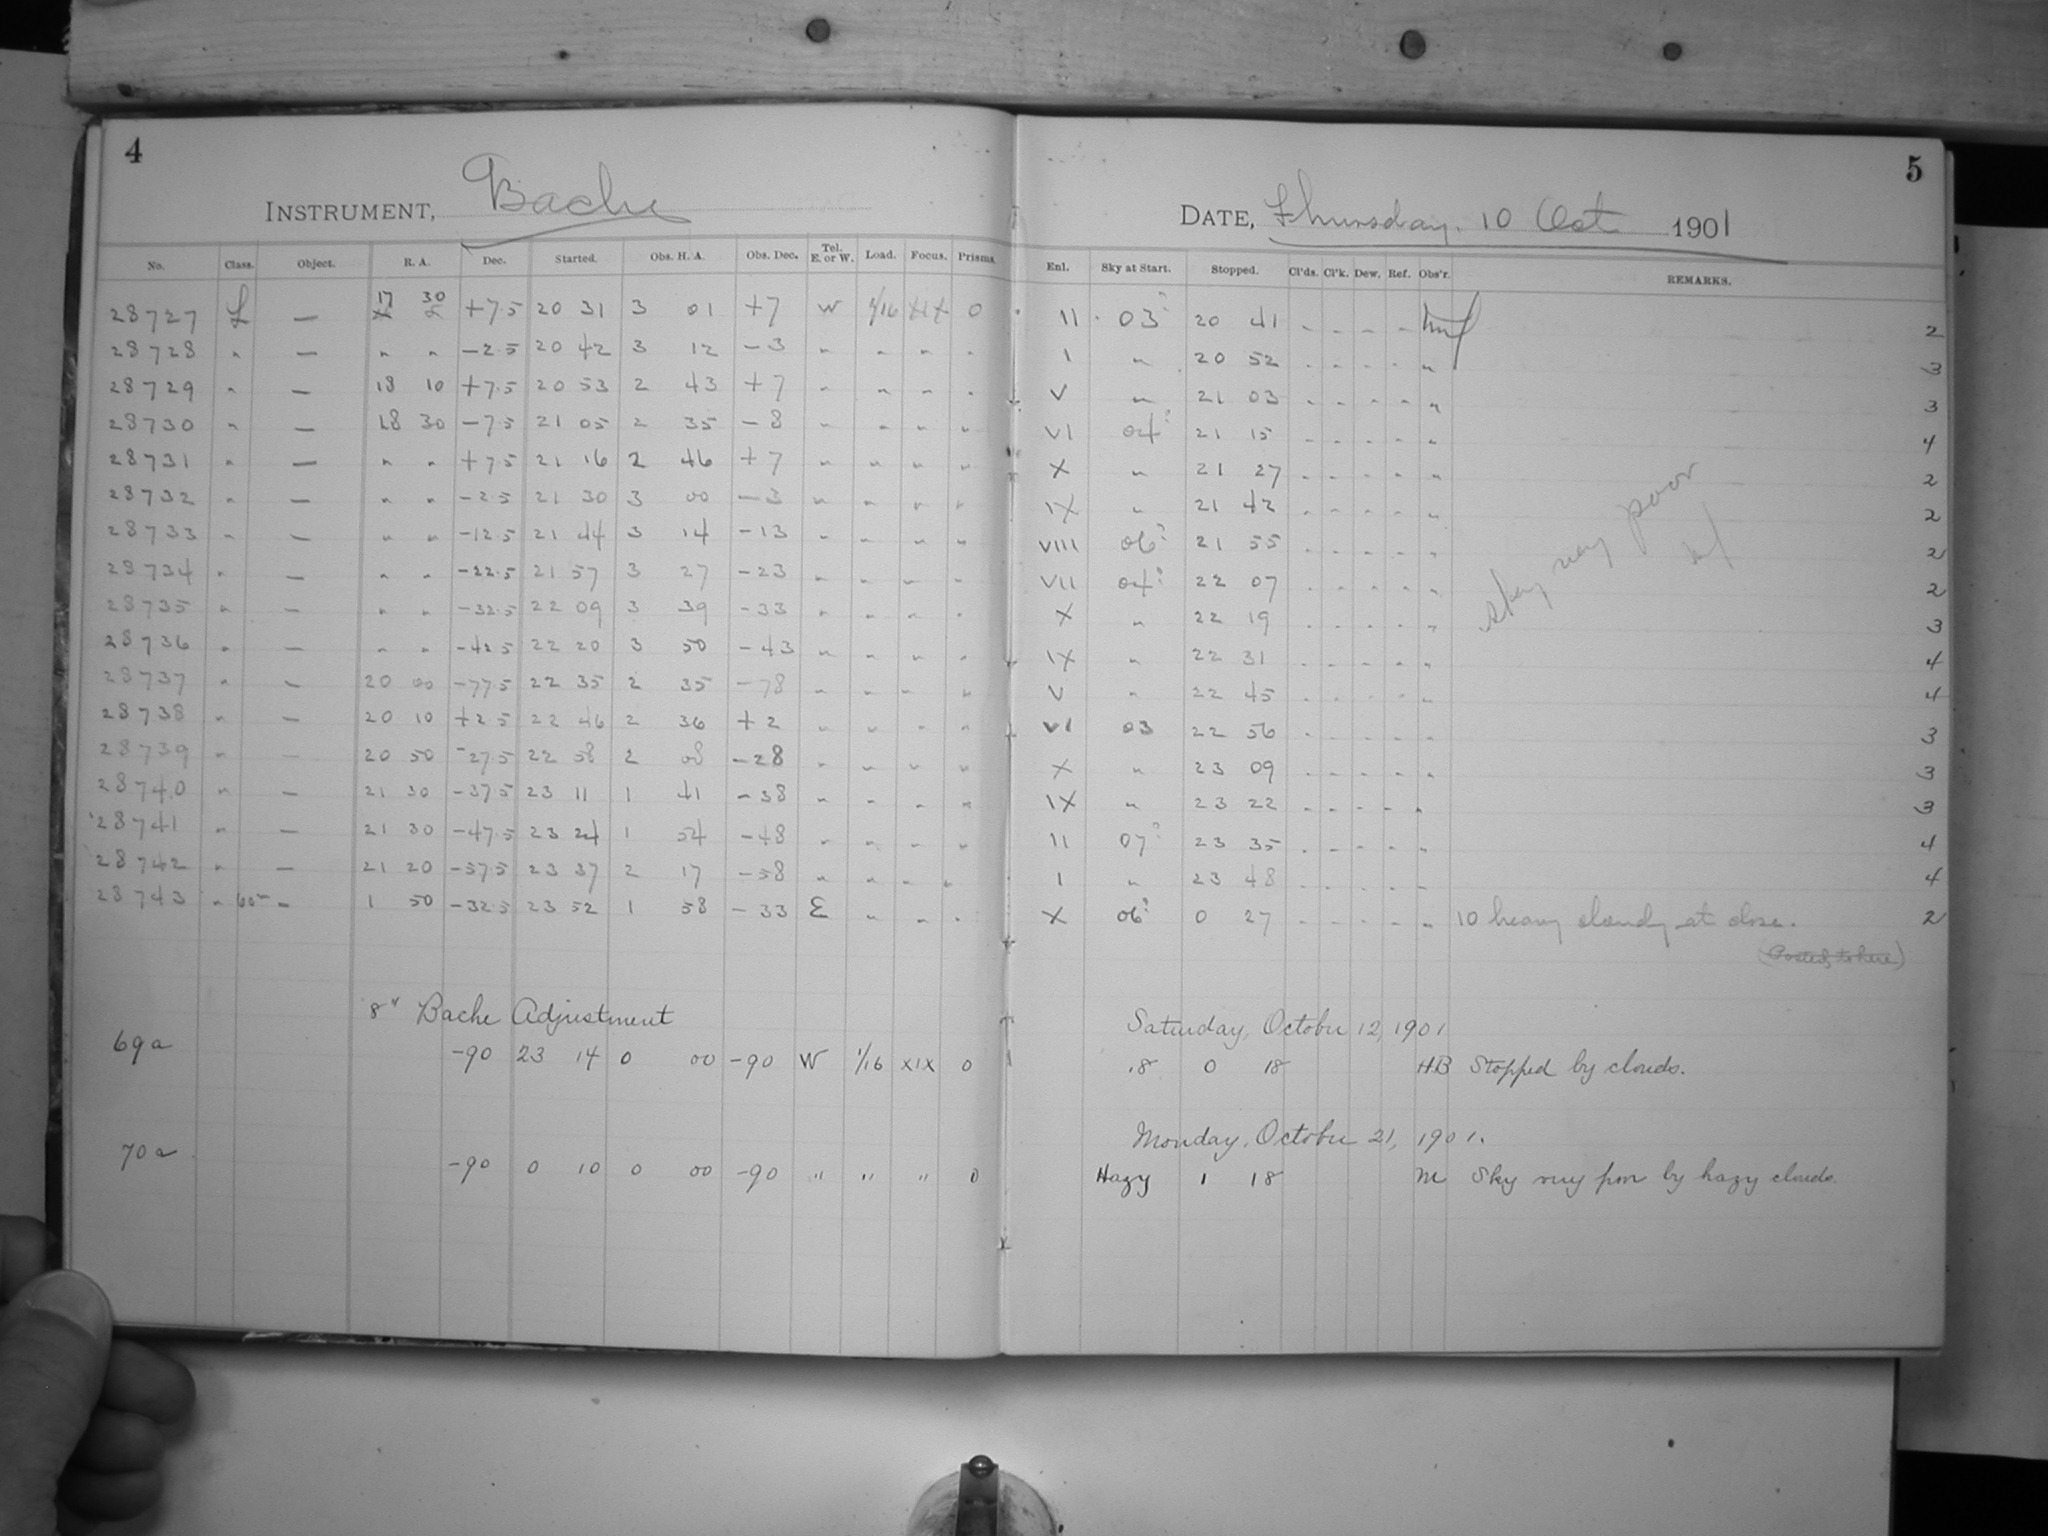 4
INSTRUMENT, Bache
No. Class. Object. R. A. Dec. Started. Obs. H. A. Obs. Dec. Tel. E. or W. Load. Focus. Prisms.
28727 L — 17 30 +7.5 20 31 3 01 +7 W 1/16 XIX 0
28728 " — " " -2.5 20 42 3 12 -3 " " " "
28729 " — 18 10 +7.5 20 53 2 43 +7 " " " "
28730 " — 18 30 -7.5 21 05 2 35 -8 " " " "
28731 " — " " +7.5 21 16 2 46 +7 " " " "
28732 " — " " -2.5 21 30 3 00 -3 " " " "
28733 " — " " -12.5 21 44 3 14 -13 " " " "
28734 " — " " -22.5 21 57 3 27 -23 " " " "
28735 " — " " -32.5 22 09 3 39 -33 " " " "
28736 " — " " -42.5 22 20 3 50 -43 " " " "
28737 " — 20 00 -77.5 22 35 2 35 -78 " " " "
28738 " — 20 10 +2.5 22 46 2 36 +2 " " " "
28739 " — 20 50 -27.5 22 58 2 08 -28 " " " "
28740 " — 21 30 -37.5 23 11 1 41 -38 " " " "
28741 " — 21 30 -47.5 23 24 1 54 -48 " " " "
28742 " — 21 20 -57.5 23 37 2 17 -58 " " " "
28743 " — 1 50 -32.5 23 52 1 58 -33 E " " "
8" Bache Adjustment
69a -90 23 14 0 00 -90 W 1/16 XIX 0
70a -90 0 10 0 00 -90 " " " 0
5
DATE, Thursday. 10 Oct 1901
Enl. Sky at Start. Stopped. Cl'ds. Cl'k. Dew. Ref. Obs'r. REMARKS.
II 03? 20 41 - - - - 2
I " 20 52 - - - - " 3
V " 21 03 - - - - " 3
VI 04? 21 15 - - - - " 4
X " 21 27 - - - - " 2
IX " 21 42 - - - - " 2
VIII 06? 21 55 - - - - " 2
VII 04? 22 07 - - - - " 2
X " 22 19 - - - - " 3
IX " 22 31 - - - - " 4
V " 22 45 - - - - " 4
VI 03 22 56 - - - - " 3
X " 23 09 - - - - " 3
IX " 23 22 - - - - " 3
II 07? 23 35 - - - - " 4
I " 23 48 - - - - " 4
X 06? 0 27 - - - - " 10 heavy cloudy at close. 2
sky very poor
(Posted to here)
Saturday, October 12, 1901
.8 0 18 HB Stopped by clouds.
Monday, October 21, 1901.
Hazy 1 18 M Sky very poor by hazy clouds.